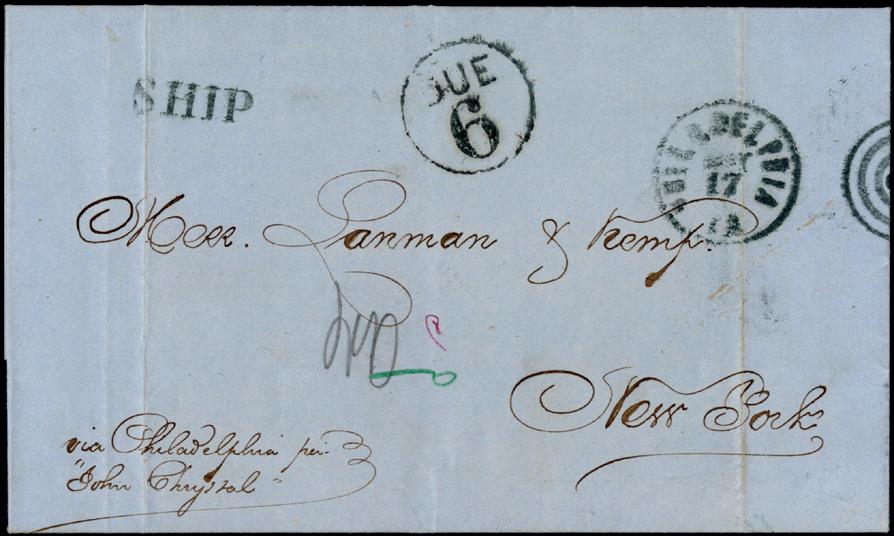 SHIP
DUE
6
PHILADELPHIA
17
PA
Mess. Lanman & Kemp.
New York
via Philadelphia per
"John Chrystal"